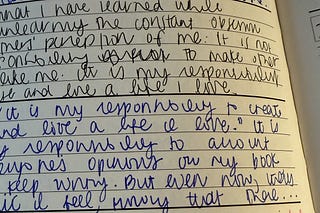 what I have learned while
unlearning the constant obsession
perception of me: It is not
responsibility to make other
like me. it is my responsibility
and live a life I love.
"it is my responsibility to create
and live a life I love." It is
my responsibility to
opinions on my book
keep writing. But even now,
I feel knowing that there...